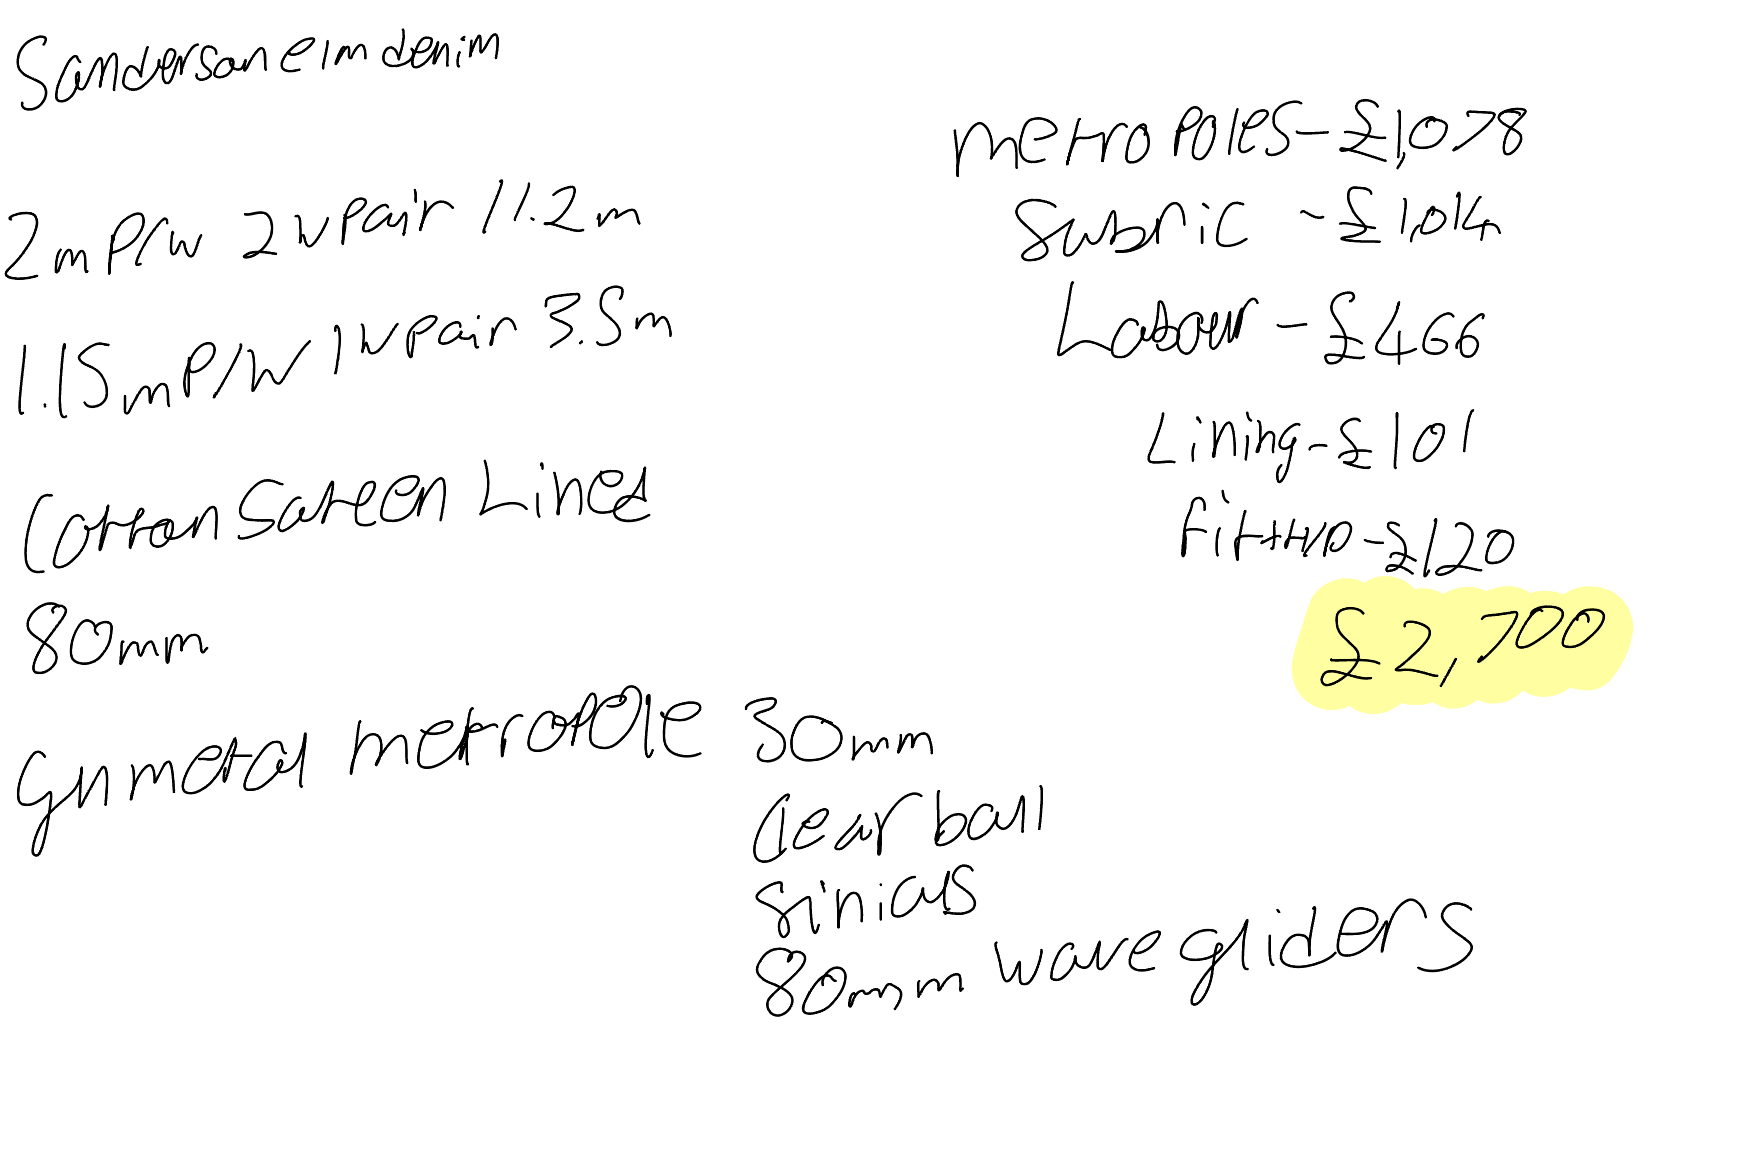 Sanderson elm denim
2m P/W 2 w pair 11.2m
1.15m P/W 1 w pair 3.5m
Cotton Sateen Lined
80mm
Gnmetal metropole 30mm
Clear ball
finials
80mm wave gliders
metro poles - £1,078
fabric - £1,014
Labour - £466
Lining - £101
fit + H/D - £120
£2,700